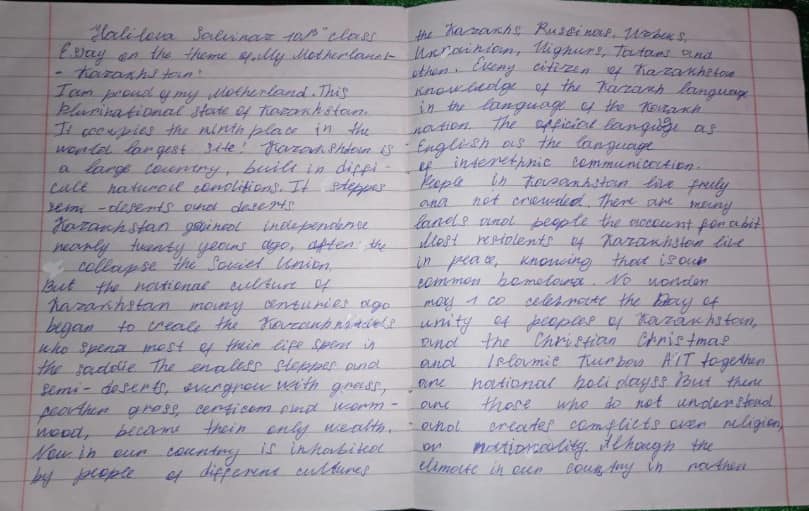 Halilova Sabinaz 10 "B" class
Essay on the theme of "My Motherland-
- Kazakhstan"
I am proud of my Motherland. This
plurinational state of Kazakhstan.
It occupies the ninth place in the
world largest site! Kazakhshtan is
a large country, built in diffi-
cult natural conditions. It steppes
semi-deserts and deserts
Kazakhstan gained independence
nearly twenty years ago, after the
collapse the Soviet Union.
But the national culture of
Kazakhstan many centuries ago
began to create the Kazakh
who spend most of their life spent in
the saddle The endless steppes and
semi-deserts, overgrow with grass,
feather grass, and worm-
wood, became their only wealth.
Now in our country is inhabited
by people of different cultures
the Kazakhs, Russinas, Uzbeks,
Ukrainian, Uighurs, Tatars and
other. Every citizen of Kazakhstan
knowledge of the Kazakh language
in the language of the Kazakh
nation. The official language as
English as the language
of interethnic communication.
People in Kazakhstan live freely
and not crowded. There are many
lands and people the account for a bit
Most residents of Kazakhstan live
in peace, knowing that is our
common homeland. No wonder
may 1 co celebrate the Day of
unity of peoples of Kazakhstan,
and the Christian Christmas
and Islamic Kurban AIT together
are national holidayss But there
are those who do not understand
and creates conflicts over religion,
or nationality. Although the
climate in our country in rather